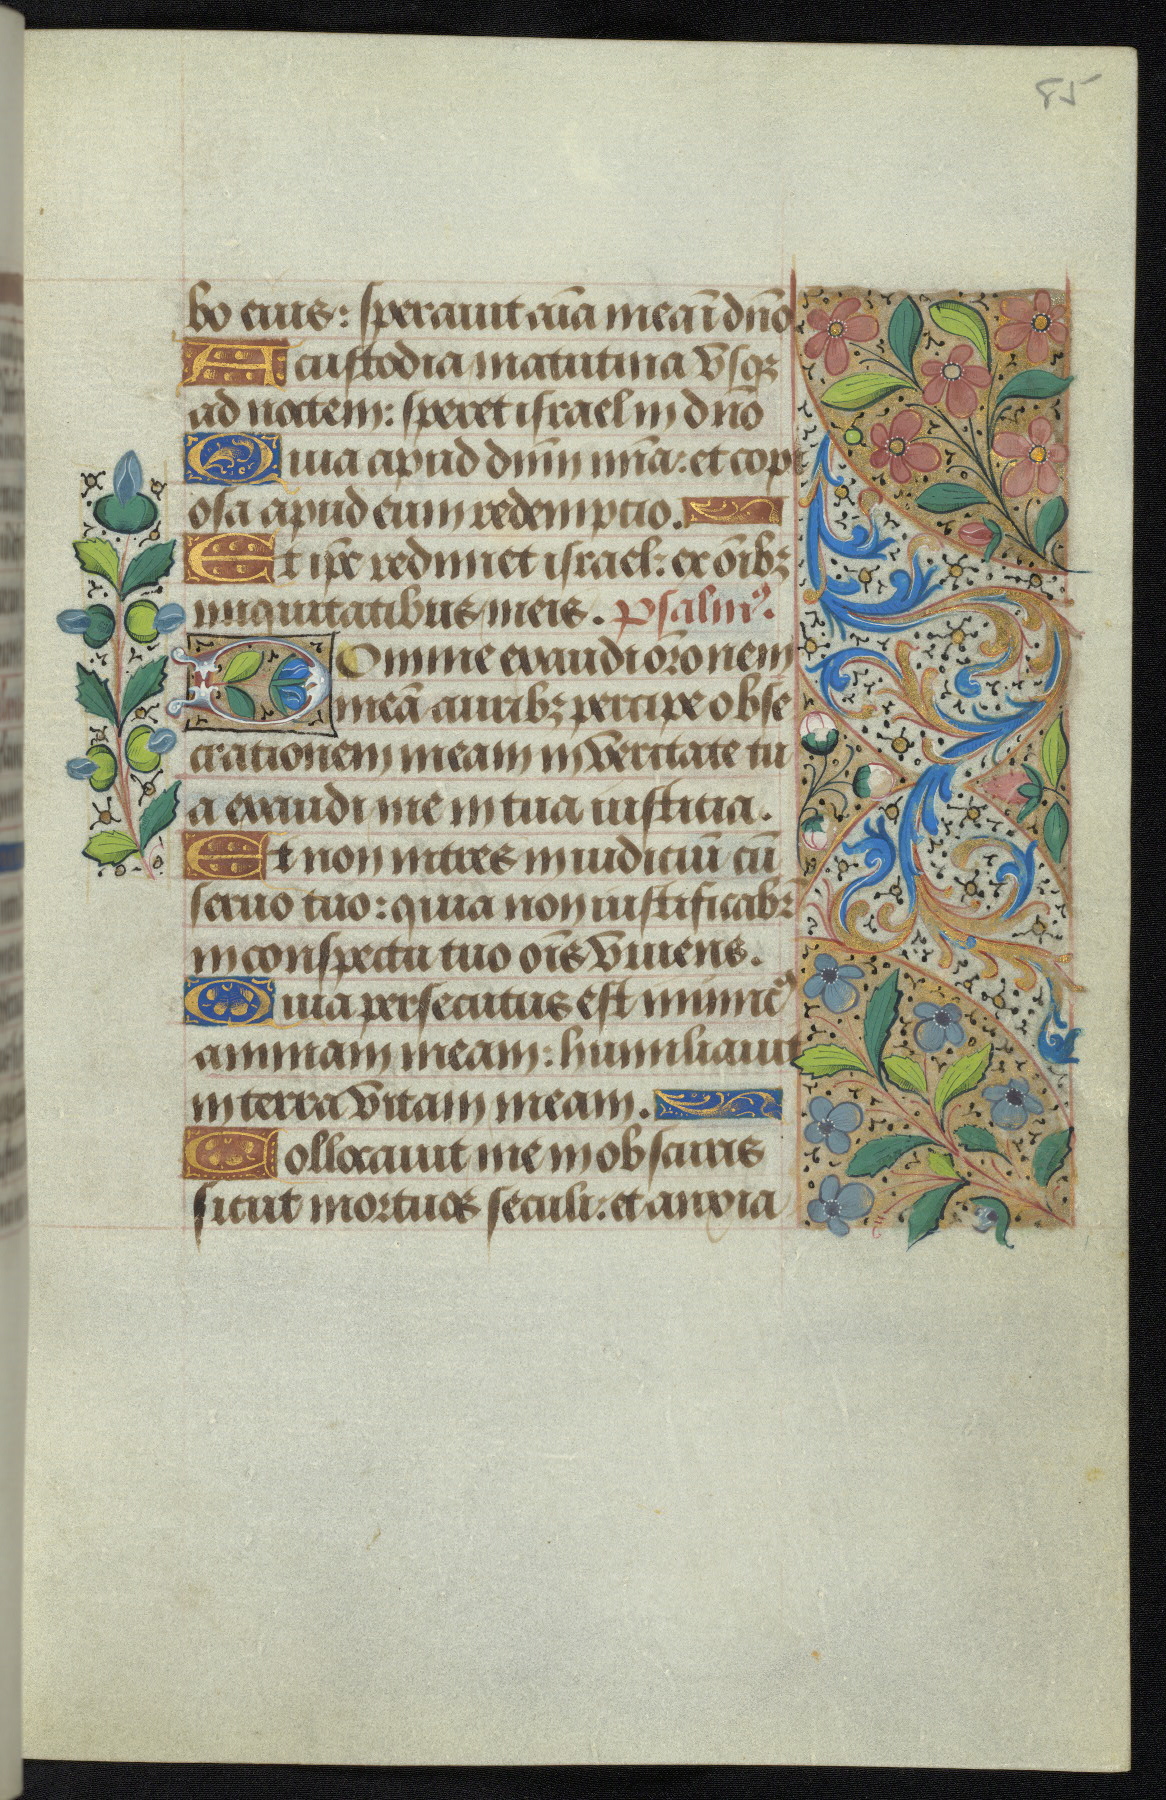 85
bo eius: sperauit aīa mea ī dn̄o
A custodia matutina vsqꝫ
ad noctem: speret israel in dn̄o
Quia apud dūm mīa: et copi
osa apud eum redemptio.
Et ip̄e redimet israel: ex oīb̄ꝫ
iniquitatibus meis. Psalmꝰ.
Domine exaudi or̄onem
meā auribꝫ percipe obse
crationem meam in veritate tu
a exaudi me in tua iusticia.
Et non intres in iudiciū cū
seruo tuo: quia non iustificabr̄
in conspectu tuo oīs viuens.
Quia persecutus est inimicꝰ
animam meam: humiliauit
in terra vitam meam.
Collocauit me in obscuris
sicut mortuos seculi: et anxia